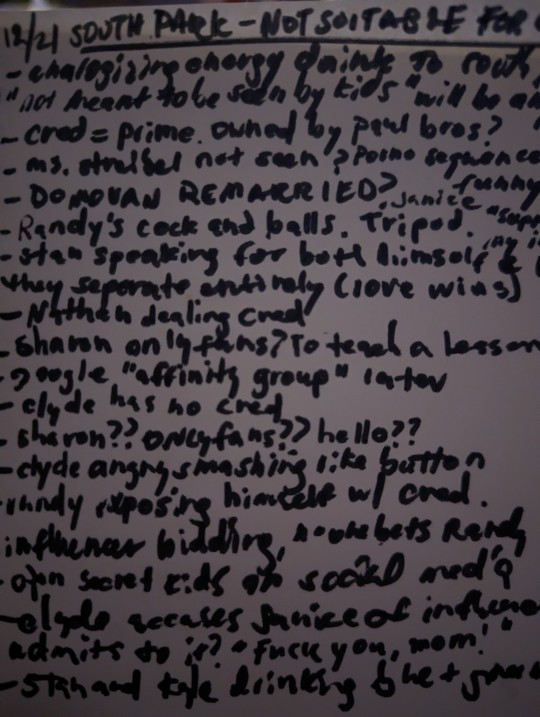 12/21 SOUTH PARK - NOT SUITABLE FOR
- analogizing energy drinks to south
"not meant to be seen by kids" will be an
- cred = prime. owned by paul bros?
- ms. streibel not seen? Porno sequence
- DONOVAN REMARRIED? Janice funny
- Randy's cock and balls. Tripod.
- stan speaking for both himself &
they separate entirely (love wins)
- Nathan dealing cred
- sharon onlyfans? To teach a lesson
- google "affinity group" later
- clyde has no cred
- sharon?? onlyfans?? hello??
- clyde angry smashing like button
- randy exposing himself w/ cred.
influencer bidding, no one bets Randy
- open secret kids on social media
- clyde accuses janice of
admits to it? "Fuck you, mom!"
- Stan and kyle drinking